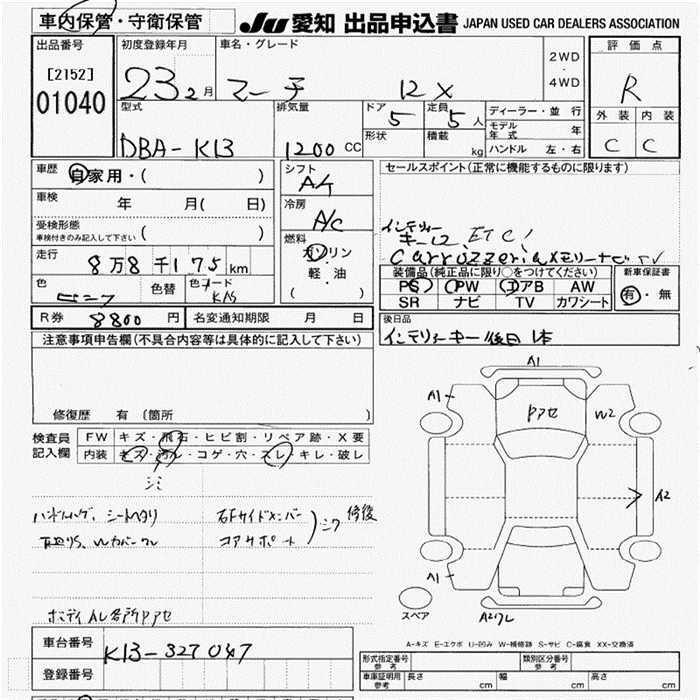 車内保管・守衛保管 JU 愛知 出品申込書 JAPAN USED CAR DEALERS ASSOCIATION
出品番号 初度登録年月 車名・グレード 評価点
[2152] 23 2月 マーチ 12X 2WD・4WD R
01040 型式 排気量 ドア 5 定員 5人 ディーラー・並行 外装 内装
形状 積載 kg モデル年式 年 C C
DBA-K13 1200 CC ハンドル 左・右
車歴 自家用・( ) シフト A/T セールスポイント(正常に機能するものに限ります)
車検 年 月( 日) 冷房 A/C
受検形態 ( ) インテリ
車検付きのみ記入して下さい キー ETC!
走行 8万8千175km 燃料 ガソリン Carrozzeriaメモリーナビ TV
軽・油 装備品(純正品に限り○をつけてください) 新車保証書
色 色替 色コード ( ) PS PW エアB AW 有・無
SR ナビ TV カワシート
R券 8800円 名変通知期限 月 日 後日品
注意事項申告欄(不具合内容等は具体的に記入して下さい) インテリキー後日1本
A1
A1 Pアセ W2
修復歴 有(箇所 )
検査員 FW キズ・飛石・ヒビ割・リペア跡・X要
記入欄 内装 キズ・汚レ・コゲ・穴・スレ・キレ・破レ
シミ
A2
ハンドルハゲ、シートヘタリ 右Fサイドメンバー
コアサポート 修後
A1
スペア A2ワレ
ボディAL各所Pアセ
A-キズ E-エクボ U-凹み W-補修跡 S-サビ C-腐食 XX-交換済
車台番号 K13-327047 形式指定番号 参考 類別区分番号 参考
登録番号 車庫証明用 参考 長さ cm 幅 cm 高さ cm